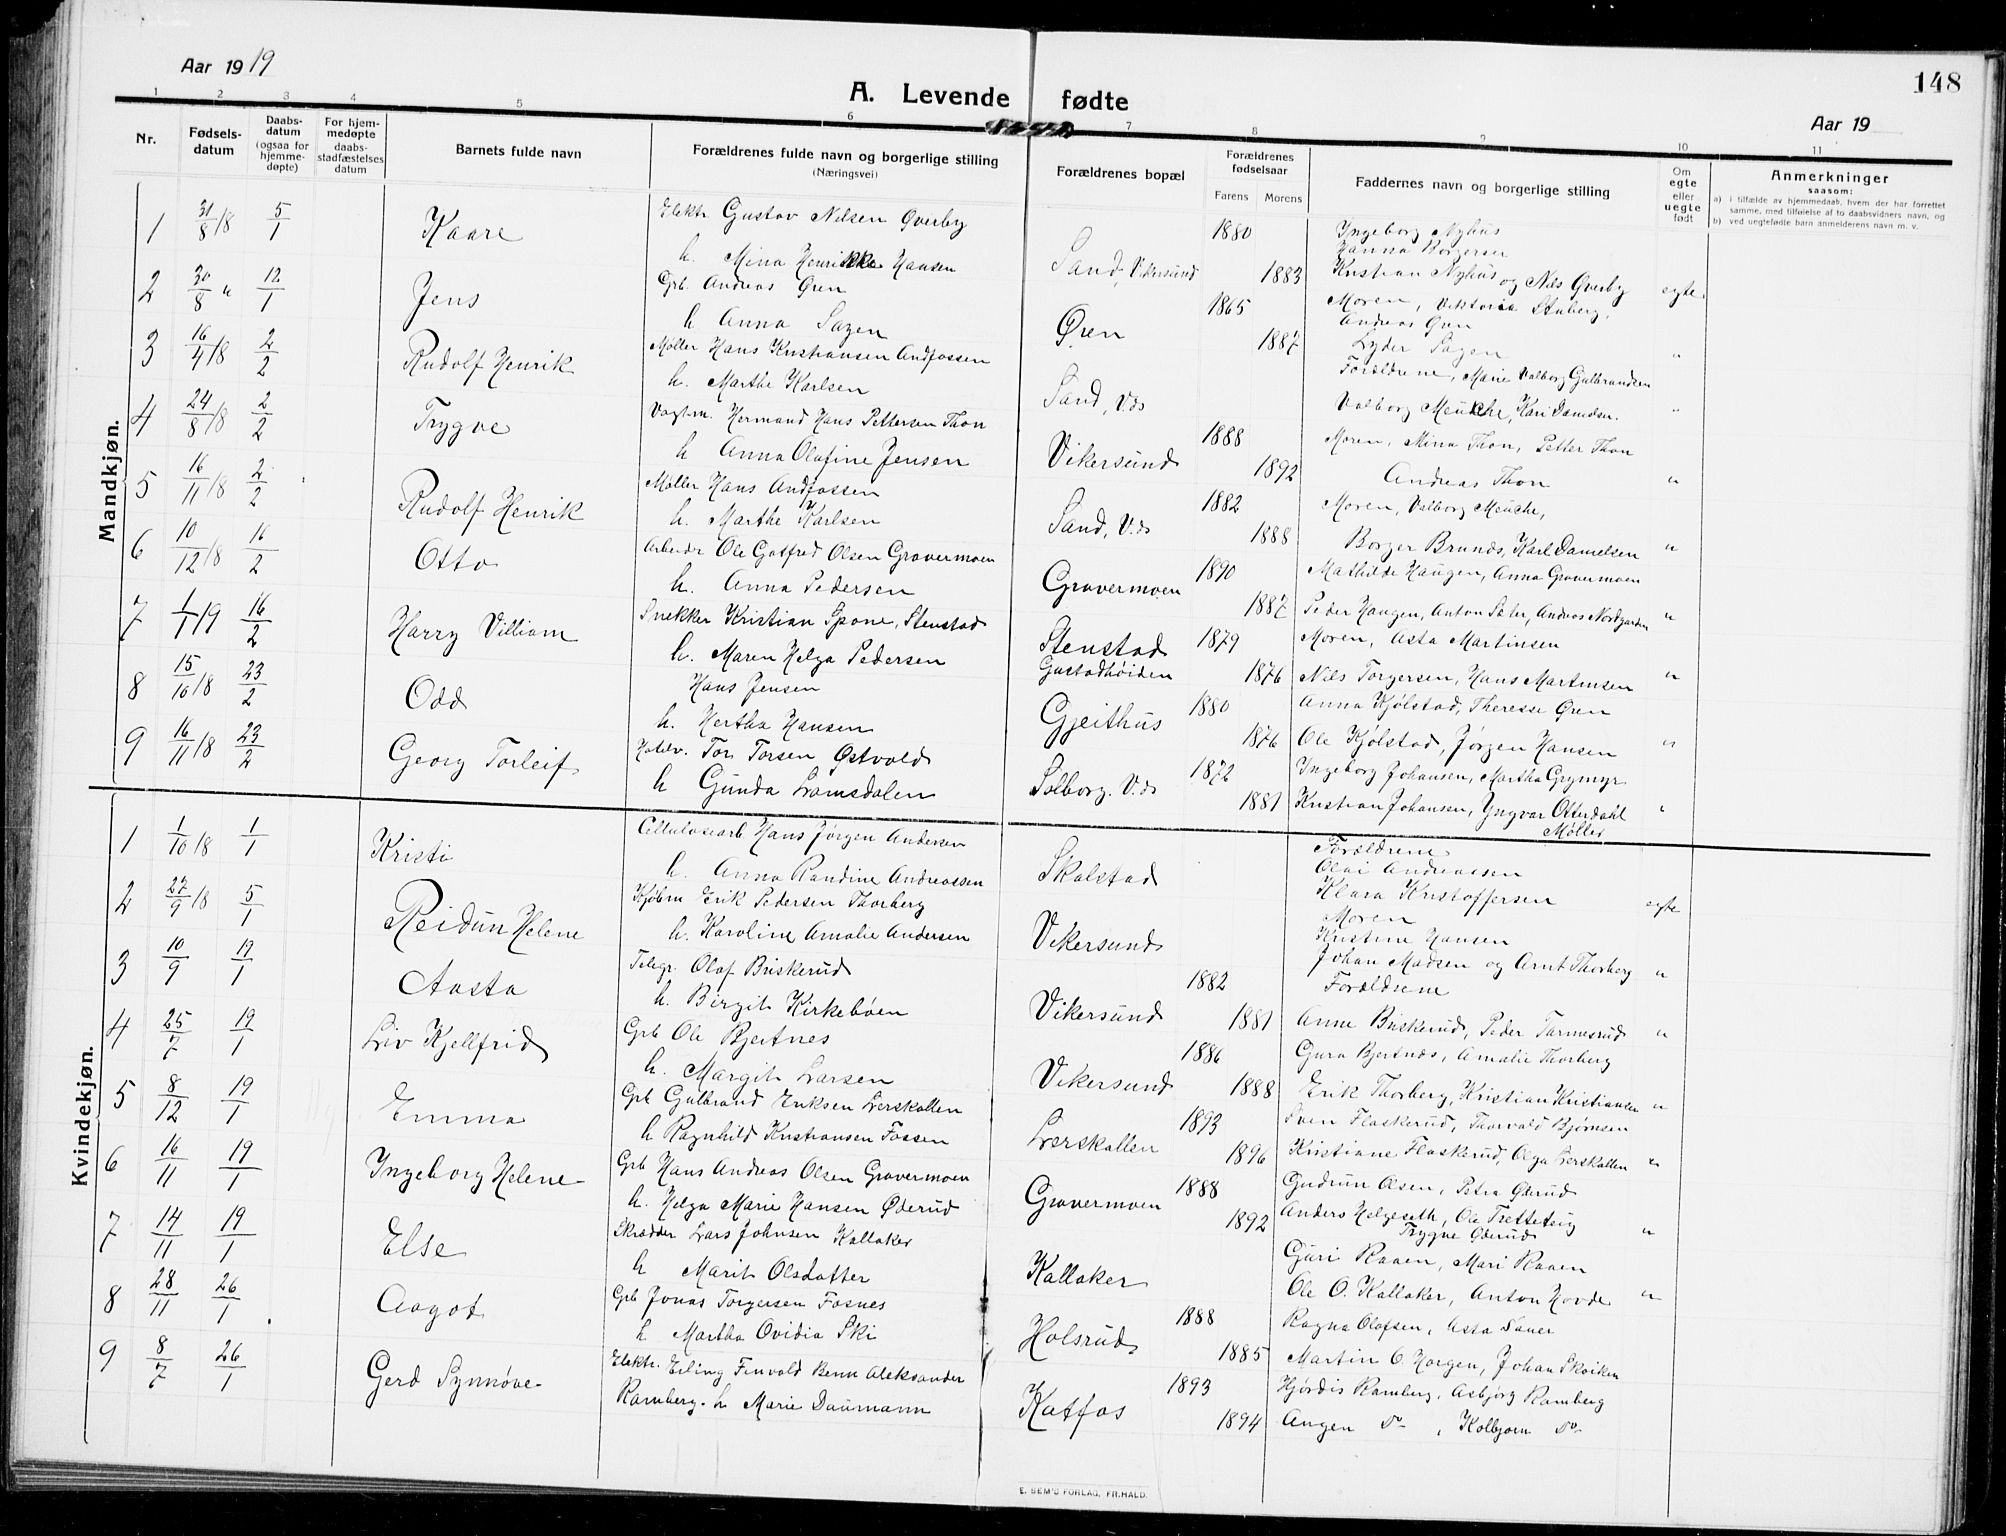 148
Aar 1919
A. Levende fødte
Aar 19
1 2 3 4 5 6 7 8 9 10 11
Nr.
Fødsels-
datum
Daabs-
datum
(ogsaa for
hjemme-
døpte)
For hjem-
medøpte
daabs-
stadfæstelses
datum
Barnets fulde navn
Forældrenes fulde navn og borgerlige stilling
(Næringsvei)
Forældrenes bopæl
Forældrenes
fødselsaar
Farens Morens
Faddernes navn og borgerlige stilling
Om
egte
eller
uegte
født
Anmerkninger
saasom:
a) i tilfælde av hjemmedaab, hvem der har forrettet
samme, med tilføielse af to daabsvidners navn, og
b) ved uegtefødte barn anmelderens navn m. v.
Mandkjøn.
1 31/8 18 5/1 Kaare Elektr. Gustav Nilsen Øverby
h. Mina Henrikke Hansen
Sand, Vikersund 1880 1883
Ingeborg Nyhus
Hanna Borgersen
Kristian Nyhus og Nils Øverby egte
2 30/8 " 12/1 Jens Grb. Andreas Øren
h Anna Sagen
Øren 1865 1887
Moren, Viktoria Stuberg,
Andreas Øren
Lyder Sagen "
3 16/4 18 2/2 Rudolf Henrik Møller Hans Kristiansen Andfossen
h. Marthe Karlsen
Sand, V.ds
Forældrene, Marie Valborg Gulbrandsen
Valborg Meuche, Kari Danielsen "
4 24/8 18 2/2 Trygve Vagtm. Hermand Hans Pettersen Thon
h Anna Olafine Jensen
Vikersund 1888 1892
Moren, Mina Thon, Petter Thon
Andreas Thon "
5 16/11 18 2/2 Rudolf Henrik Møller Hans Andfossen
h. Marthe Karlsen
Sand, V.ds 1882 1888
Moren, Valborg Meuche,
Borger Brunæs, Karl Danielsen "
6 10/12 18 16/2 Otto Arbeider Ole Gotfred Olsen Gravermoen
h. Anna Pedersen
Gravermoen 1890 1887
Mathilde Haugen, Anna Gravermoen
Peder Haugen, Anton Sæter, Andreas Nordgarden "
7 1/1 19 16/2 Harry Villiam Snekker Kristian Spone, Stenstad
h. Maren Helga Pedersen
Stenstad
Gustadhøiden 1879 1876
Moren, Asta Martinsen
Nils Torgersen, Hans Martinsen "
8 15/10 18 23/2 Odd Hans Jensen
h. Hertha Hansen
Gjeithus 1880 1876
Anna Kjølstad, Therese Øren
Ole Kjølstad, Jørgen Hansen "
9 16/11 18 23/2 Georg Torleif Tor Torsen Østvold
h Gunda Lamsdalen
Solborg. V.ds 1872 1881
Ingeborg Johansen, Martha Grymyr
Kristian Johansen, Yngvar Otterdahl
Møller "
Kvindekjøn.
1 1/10 18 1/1 Kristi Cellulosearb Hans Jørgen Andersen
h. Anna Randine Andreassen
Skalstad
Forældrene
Olai Andreassen
Klara Kristoffersen egte
2 27/9 18 5/1 Reidun Helene Kjøbm Erik Pedersen Thorberg
h. Karoline Amalie Andersen
Vikersund
Moren
Kristine Hansen
Johan Madsen og Arnt Thorberg "
3 10/9 19/1 Aasta Telegr. Olaf Briskerud
h. Birgit Kirkebøen
Vikersund 1882 1881
Forældrene
Anne Briskerud, Peder Tormusrud "
4 25/7 19/1 Liv Kjellfrid Grb Ole Bjertnes
h. Margit Larsen
Vikersund 1886 1888
Guro Bjertnes, Amalie Thorberg
Erik Thorberg, Kristian Kristiansen "
5 8/12 19/1 Emma Grb Gulbrand Eriksen Lerskallen
h Ragnhild Kristiansen Fossen
Lerskallen 1893 1896
Sven Flaskerud, Thorvald Bjørnsen
Kristiane Flaskerud, Olga Lerskallen "
6 16/11 19/1 Ingeborg Helene Grb Hans Andreas Olsen Gravermoen
h. Helga Marie Hansen Øderud
Gravermoen 1888 1892
Gudrun Olsen, Petra Øderud
Anders Helgeseth, Ole Tretteteig
Trygve Øderud "
7 14/11 19/1 Else Skrædder Lars Johnsen Kallaker
h Marit Olsdatter
Kallaker
Guri Raaen, Mari Raaen
Ole O. Kallaker, Anton Hovde "
8 28/11 26/1 Aagot Grb Jonas Torgersen Fosnes
h Martha Ovidia Ski
Holsrud 1888 1885
Ragna Olafsen, Asta Sauer
Martin O. Horgen, Johan Skoiken
9 8/7 26/1 Gerd Synnøve Elektr. Erling Finvald Benn Aleksander
Ramberg. h Marie Daumann
Katfos 1893 1894
Hjørdis Ramberg, Asbjørg Ramberg
Aagen Do , Kolbjørn Do
E. SEM'S FORLAG, FR.HALD.